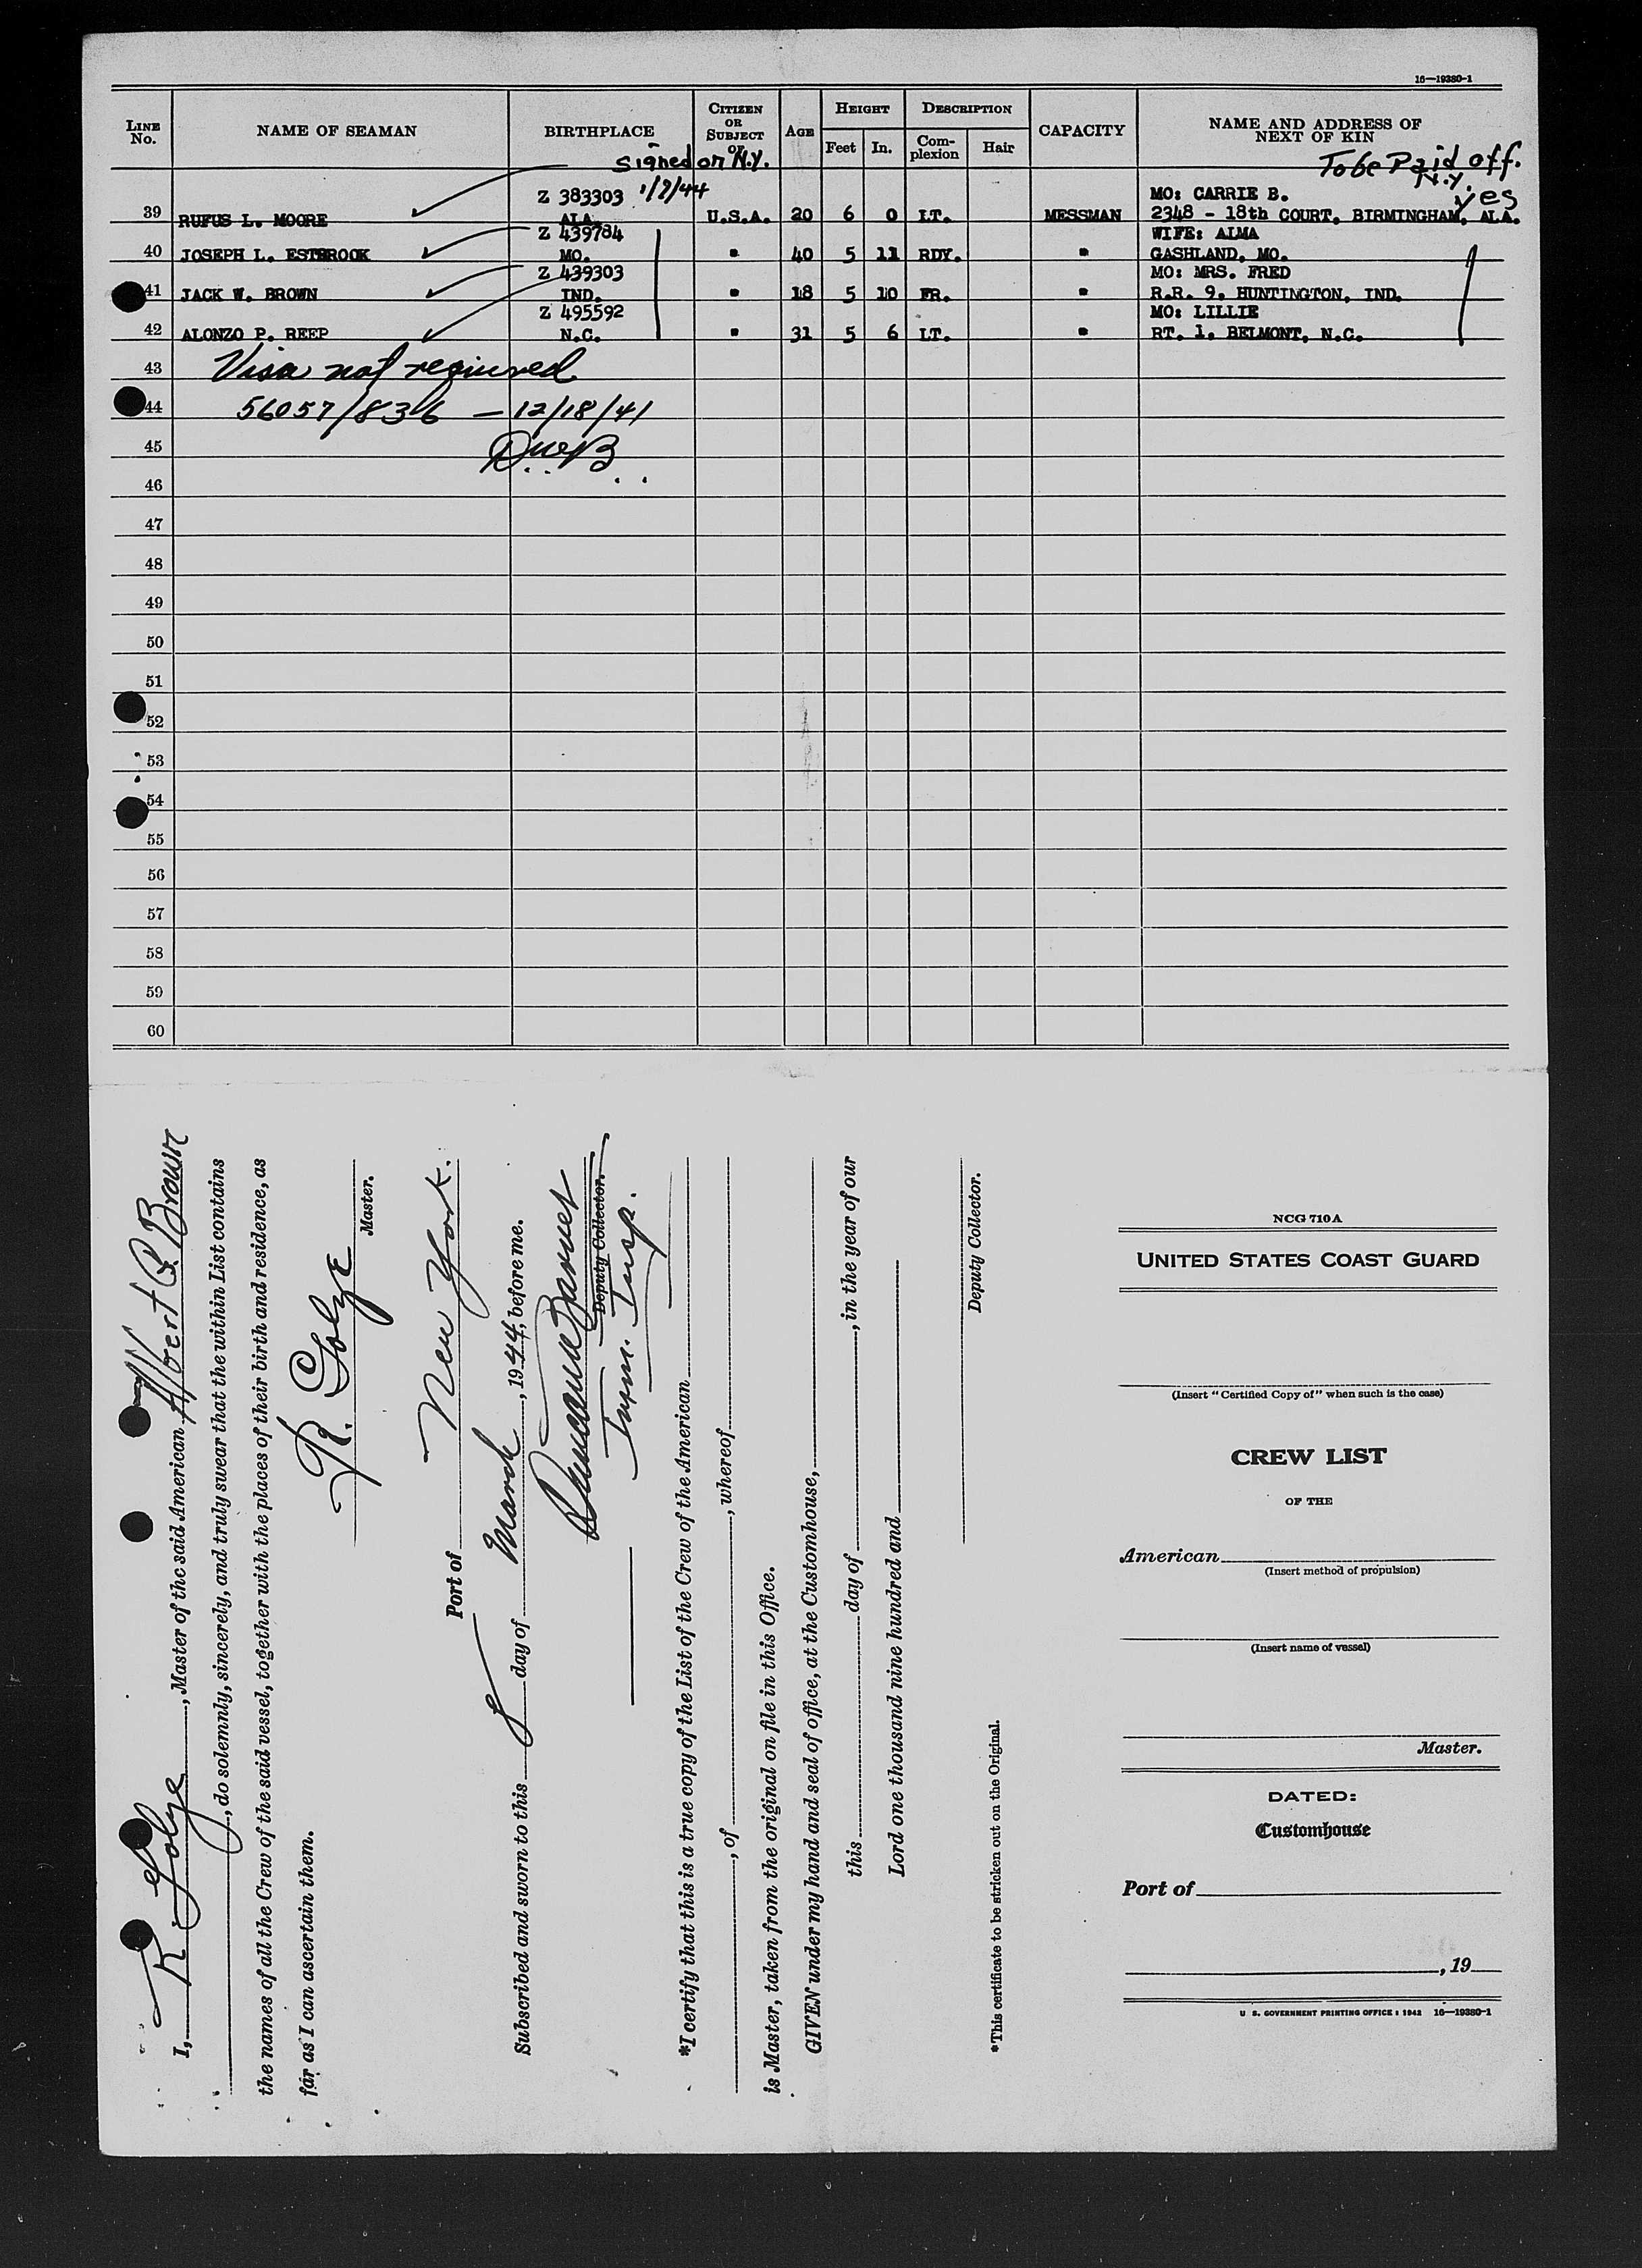 16—19380-1
LINE No. NAME OF SEAMAN BIRTHPLACE CITIZEN OR SUBJECT OF AGE HEIGHT Feet In. DESCRIPTION Complexion Hair CAPACITY NAME AND ADDRESS OF NEXT OF KIN
Signed on N.Y. To be Paid off.
1/7/44 N.Y. yes
Z 383303 MO: CARRIE B.
39 RUFUS L. MOORE ALA. U.S.A. 20 6 0 LT. MESSMAN 2348 - 18th COURT, BIRMINGHAM, ALA.
Z 439784 WIFE: ALMA
40 JOSEPH L. ESTBROOK MO. " 40 5 11 RDY. " GASHLAND, MO.
Z 439303 MO: MRS. FRED
41 JACK W. BROWN IND. " 18 5 10 FR. " R.R. 9, HUNTINGTON, IND.
Z 495592 MO: LILLIE
42 ALONZO P. REEP N.C. " 31 5 6 LT. " RT. 1, BELMONT, N.C.
43 Visa not required
44 56057/836 — 12/18/41
45
46
47
48
49
50
51
52
53
54
55
56
57
58
59
60
I, R. Golze, Master of the said American Albert G. Brown
, do solemnly, sincerely, and truly swear that the within List contains
the names of all the Crew of the said vessel, together with the places of their birth and residence, as
far as I can ascertain them.
R. Golze
Master.
Port of New York.
Subscribed and sworn to this 8 day of March, 1944, before me.
Deputy Collector.
Imm. Insp.
*I certify that this is a true copy of the List of the Crew of the American
, of , whereof
is Master, taken from the original on file in this Office.
GIVEN under my hand and seal of office, at the Customhouse,
this day of , in the year of our
Lord one thousand nine hundred and
Deputy Collector.
*This certificate to be stricken out on the Original.
NCG 710A
UNITED STATES COAST GUARD
(Insert "Certified Copy of" when such is the case)
CREW LIST
OF THE
American
(Insert method of propulsion)
(Insert name of vessel)
Master.
DATED:
Customhouse
Port of
, 19
U. S. GOVERNMENT PRINTING OFFICE : 1942 16—19380-1